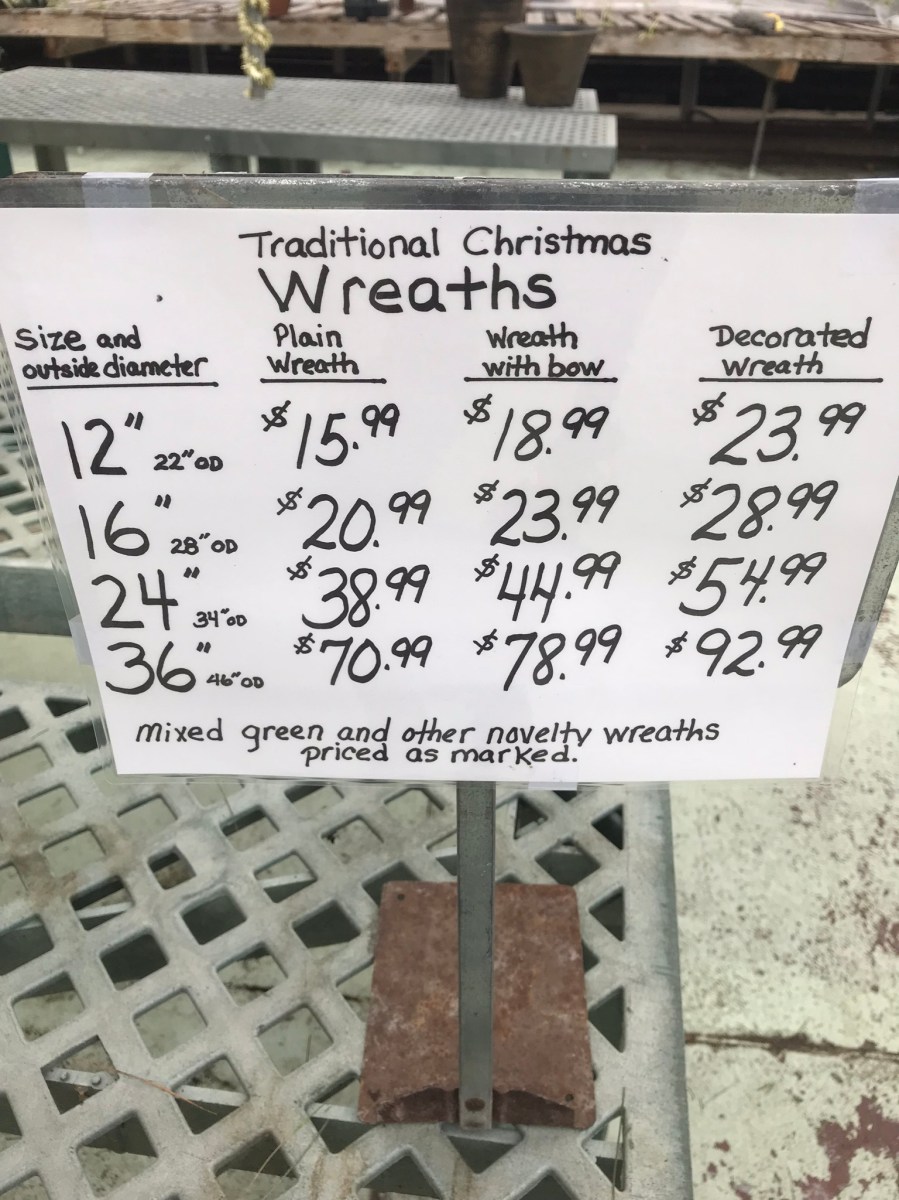 Traditional Christmas
Wreaths
Size and outside diameter
Plain Wreath
Wreath with bow
Decorated Wreath
12" 22"OD $15.99 $18.99 $23.99
16" 28"OD $20.99 $23.99 $28.99
24" 34"OD $38.99 $44.99 $54.99
36" 46"OD $70.99 $78.99 $92.99
mixed green and other novelty wreaths
priced as marked.